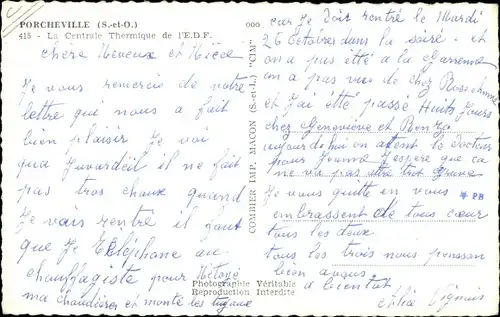 PORCHEVILLE (S.-et-O.)
415 - La Centrale Thermique de l'E.D.F.
chère Neveux et Nièce
Je vous remercie de votre
lettre qui nous a fait
bien plaisir Je voi
qua Juvardeil il ne fait
pas tros chaux quand
Je vais rentre il faut
que Je Téléphone au
chauffagiste pour
ma chaudière et monté les tuyaux
COMBIER IMP. MACON (S.-et-L.) "CIM"
Photographie Véritable
Reproduction Interdite
000
car Je Doit rentré le Mardi
26 Octobres dans la soiré et
on a pas été a la Garenne
on a pas vue de chez
et J'ai été passé Huits Jours
chez Geneviève et
aujourdehui on attent le Docteur
pour Jeanne J'espère que ca
ne vie pas être trot Grave
Je vous quitte en vous
* PB
embrassent de tous cœur
tous les deux
tous les trois nous pensson
bien
a bientot